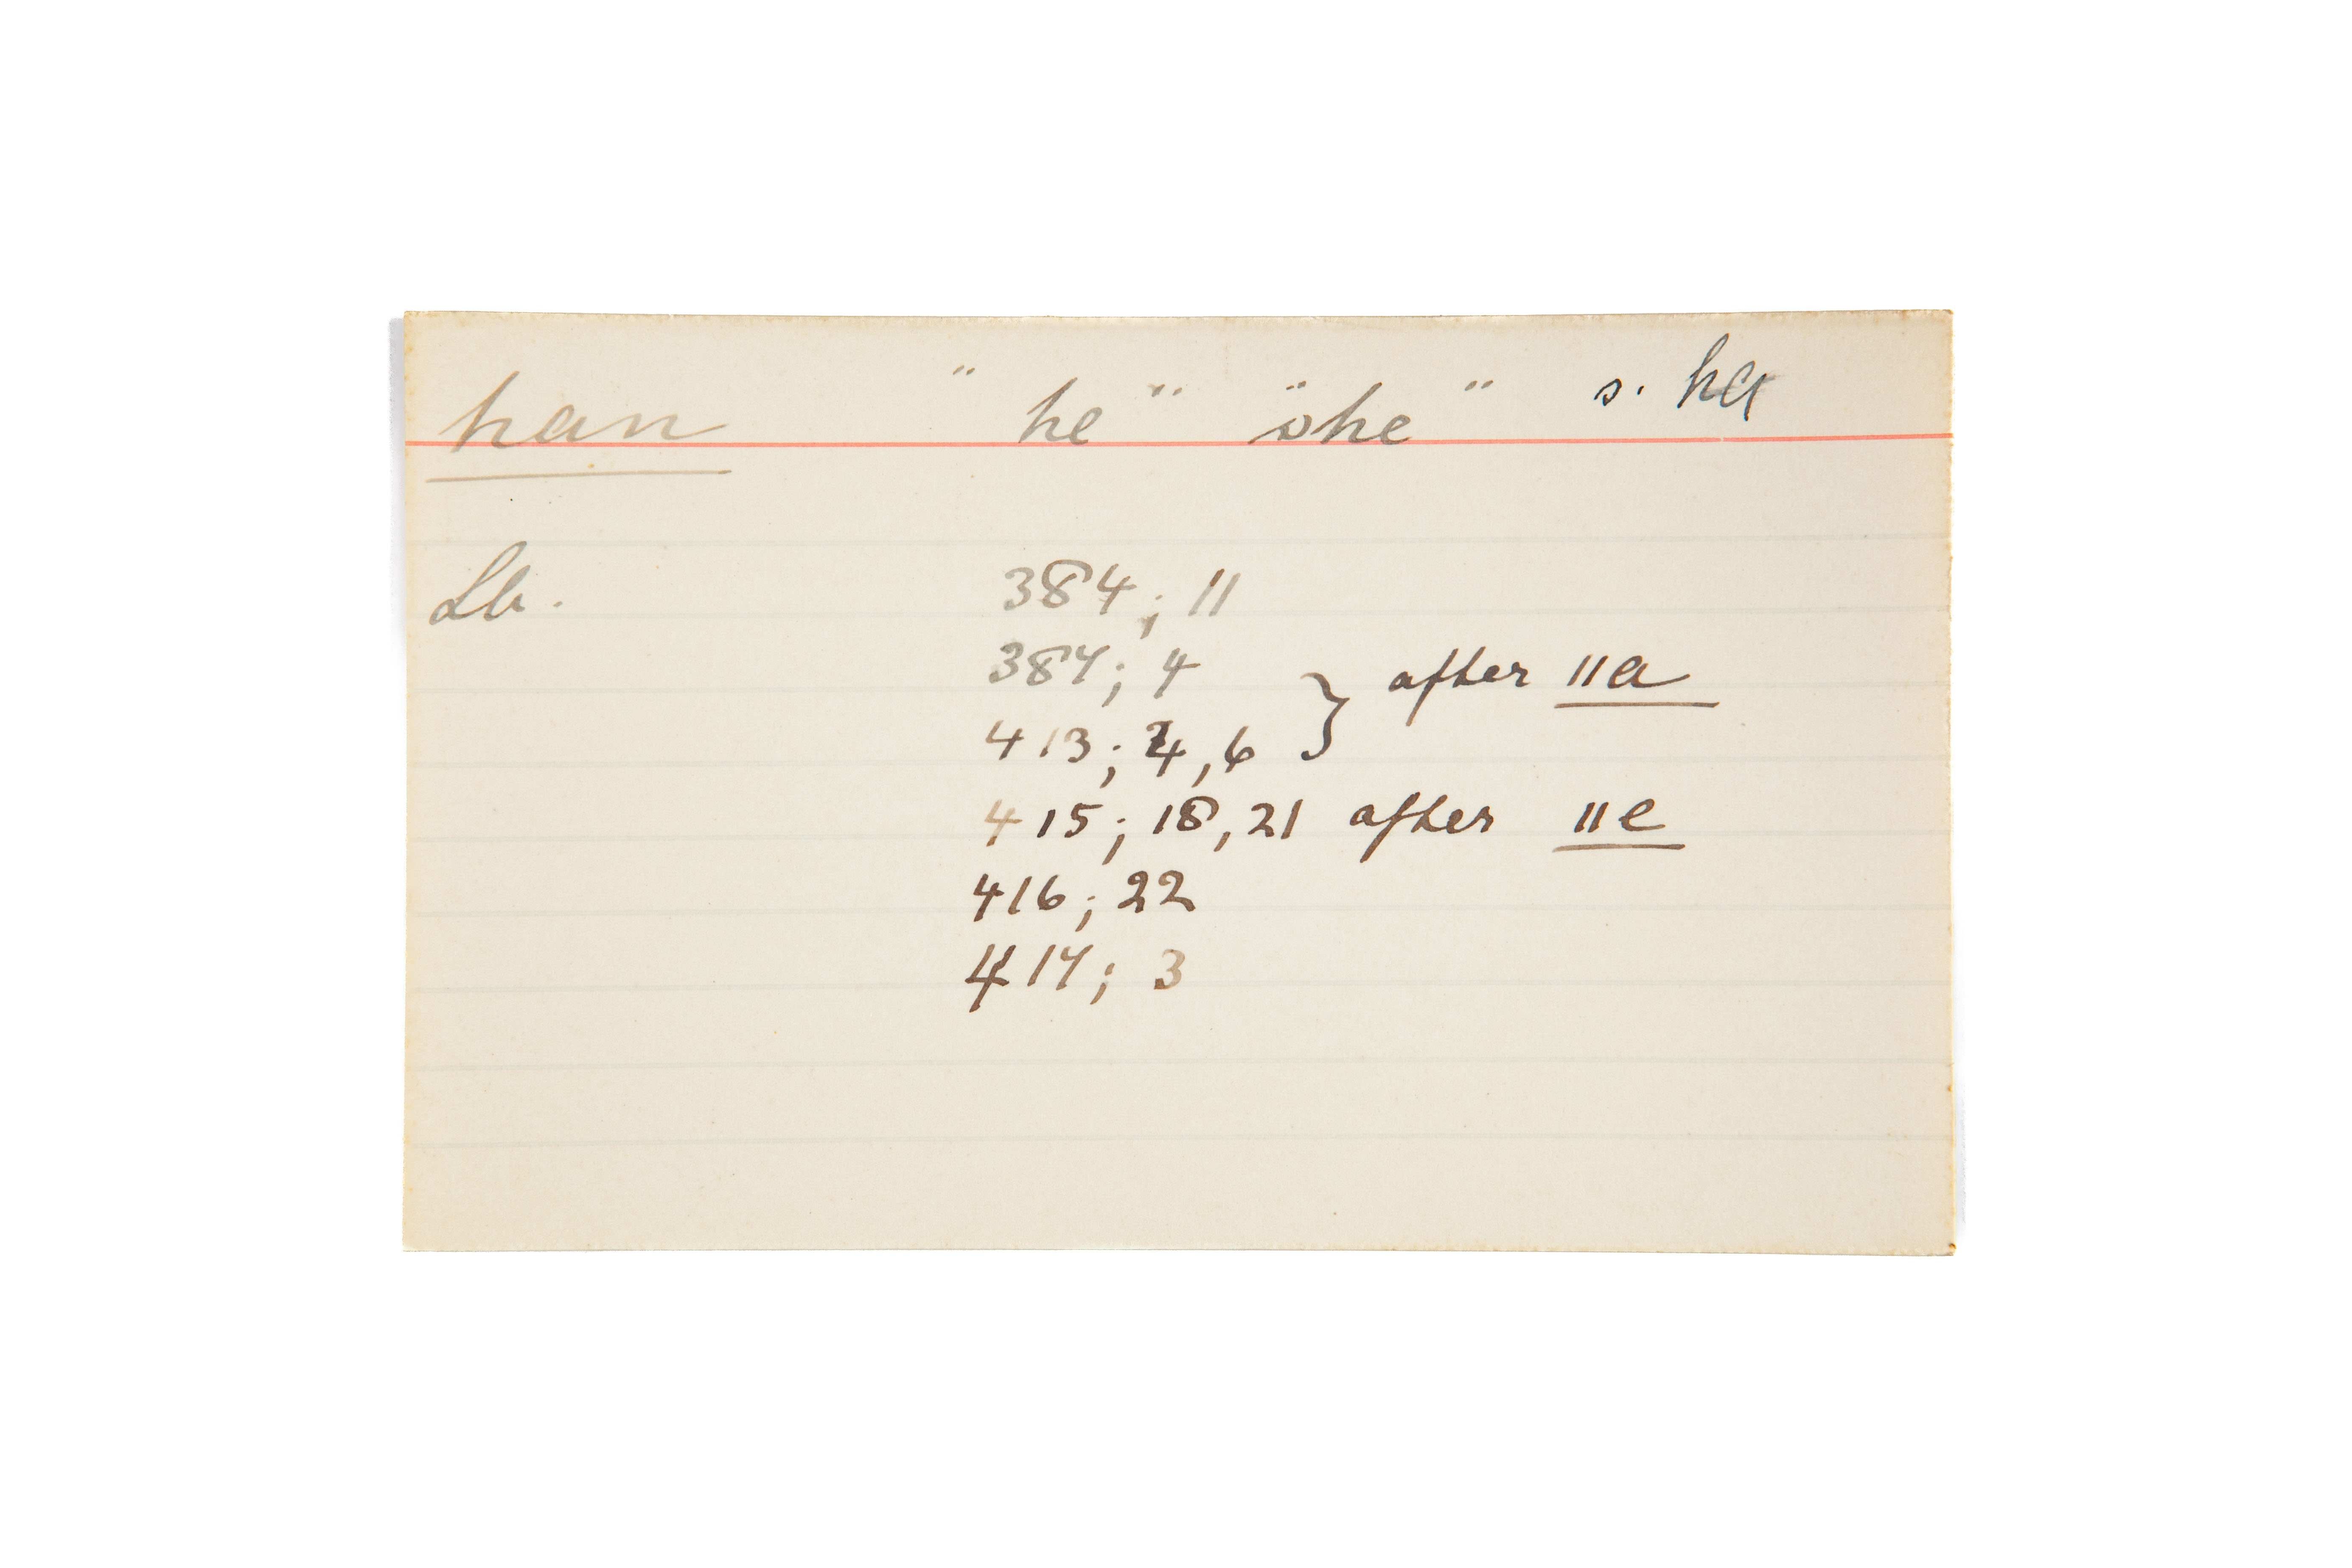 han "he" "she" s. ha
Lb. 384; 11
387; 4 } after ‖a
413; 4, 6
415; 18, 21 after ‖e
416; 22
417; 3